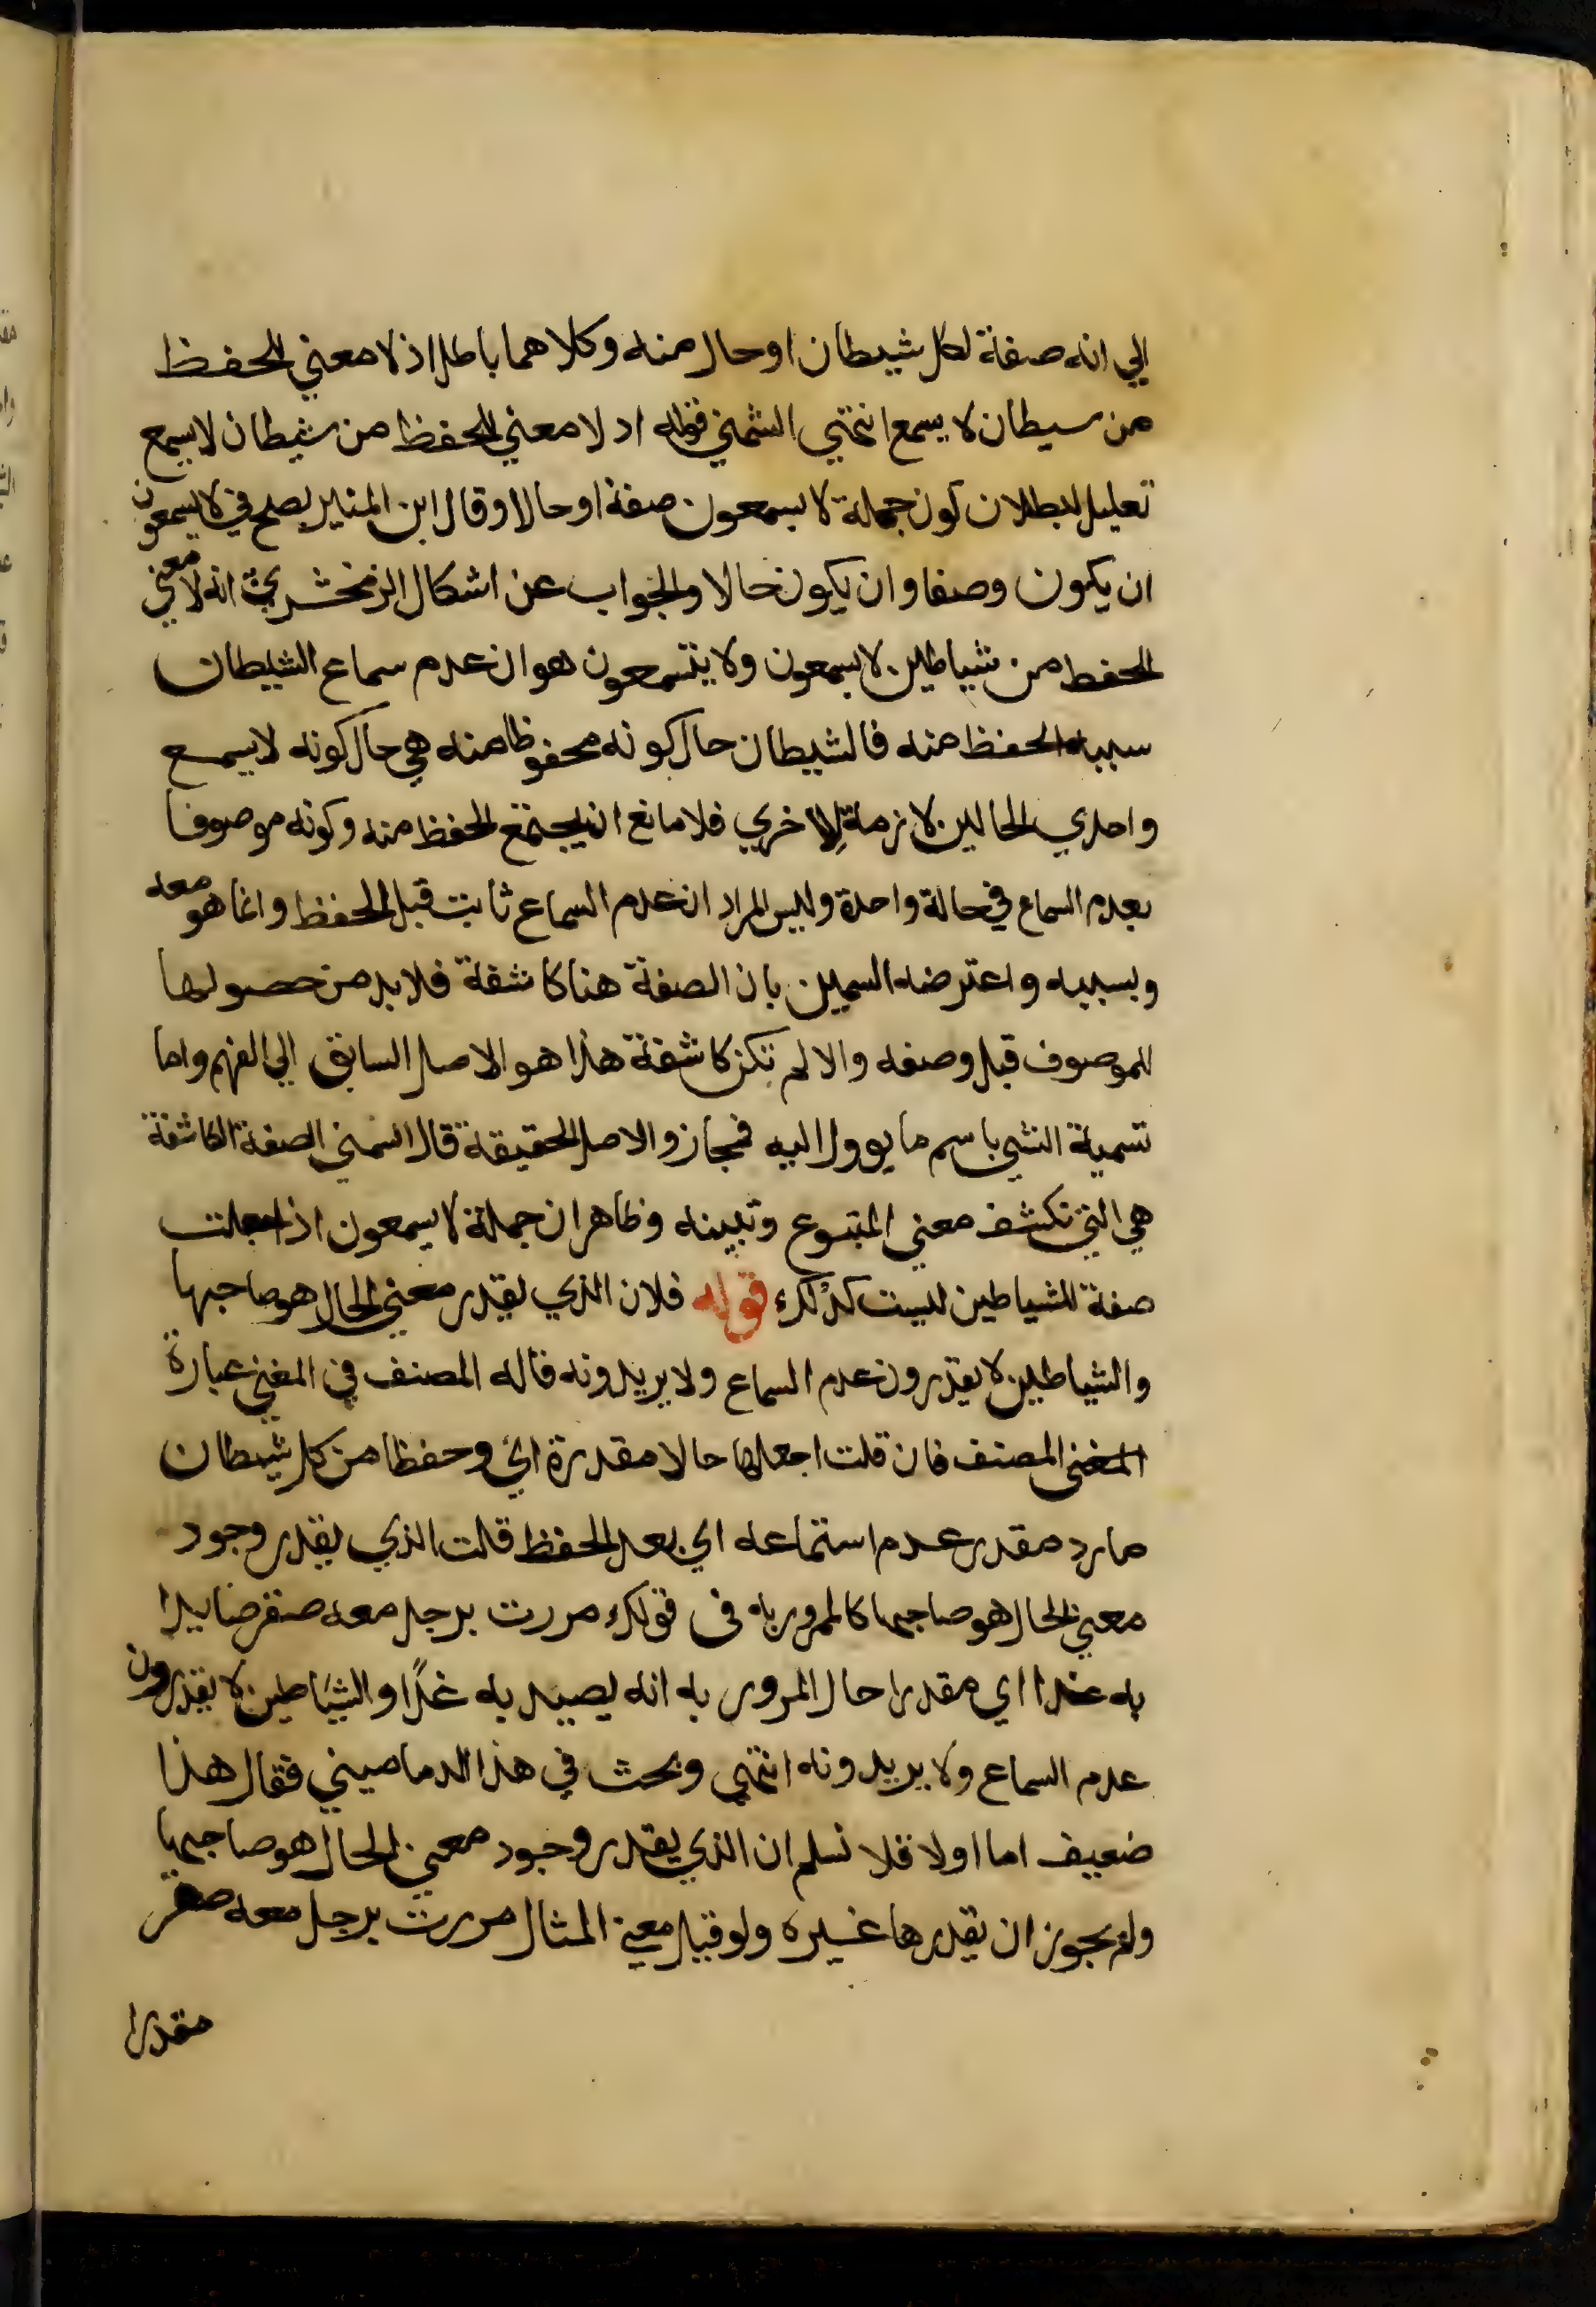 الي انه صفة لكل شيطان او حال منه وكلاهما باطل اذ لا معني للحفظ
من سيطان لا يسمع انتهي الشمني قوله اد لا معني للحفظ من شيطان لا يسمع
تعليل لبطلان كون جملة لا يسمعون صفة او حالا وقال ابن المنير يصلح في لا يسمعون
ان يكون وصفا وان يكون حالا والجواب عن اشكال الزمخشري انه لا معني في
الحفظ من شياطين لا يسمعون ولا يتسمعون هو ان عدم سماع الشيطان
سببه الحفظ منه فالشيطان حال كونه محفوظا منه هي حال كونه لا يسمع
واحدي الحالين لازمة للاخري فلا مانع ان يجتمع الحفظ منه وكونه موصوفا
بعدم السماع في حالة واحدة وليس المراد ان عدم السماع ثابت قبل الحفظ وانما هو معه
وبسببه واعترضه السمين بان الصفة هنا كاشفة فلا بد من حصولها
للموصوف قبل وصفه والا لم تكن كاشفة هذا هو الاصل السابق الي الفهم واما
تسمية الشي باسم ما يوول اليه فمجاز والاصل الحقيقة قال الشمني الصفة الكاشفة
هي التي تكشف معني المتبوع وتبينه وظاهر ان جملة لا يسمعون اذا جعلت
صفة للشياطين ليست كذلك قوله فلان الذي يقدر معني الحال هو صاحبها
والشياطين لا يقدرون عدم السماع ولا يريدونه قاله المصنف في المغني عبارة
المغني المصنف فان قلت اجعلها حالا مقدرة اي وحفظا من كل شيطان
مارد مقدر عدم استماعه اي بعد الحفظ قلت الذي يقدر وجود
معني الحال هو صاحبها كالمرور به في قولك مررت برجل معه صقر صايدا
به غدا اي مقدرا حال المرور به انه يصيد به غدًا والشياطين لا يقدرون
عدم السماع ولا يريدونه انتهي وبحث في هذا الدماميني فقال هذا
ضعيف اما اولا فلا نسلم ان الذي يقدر وجود معني الحال هو صاحبها
ولم يجوز ان يقدرها غيره ولو قيل معني المثال مررت برجل معه صقر
مقدرا